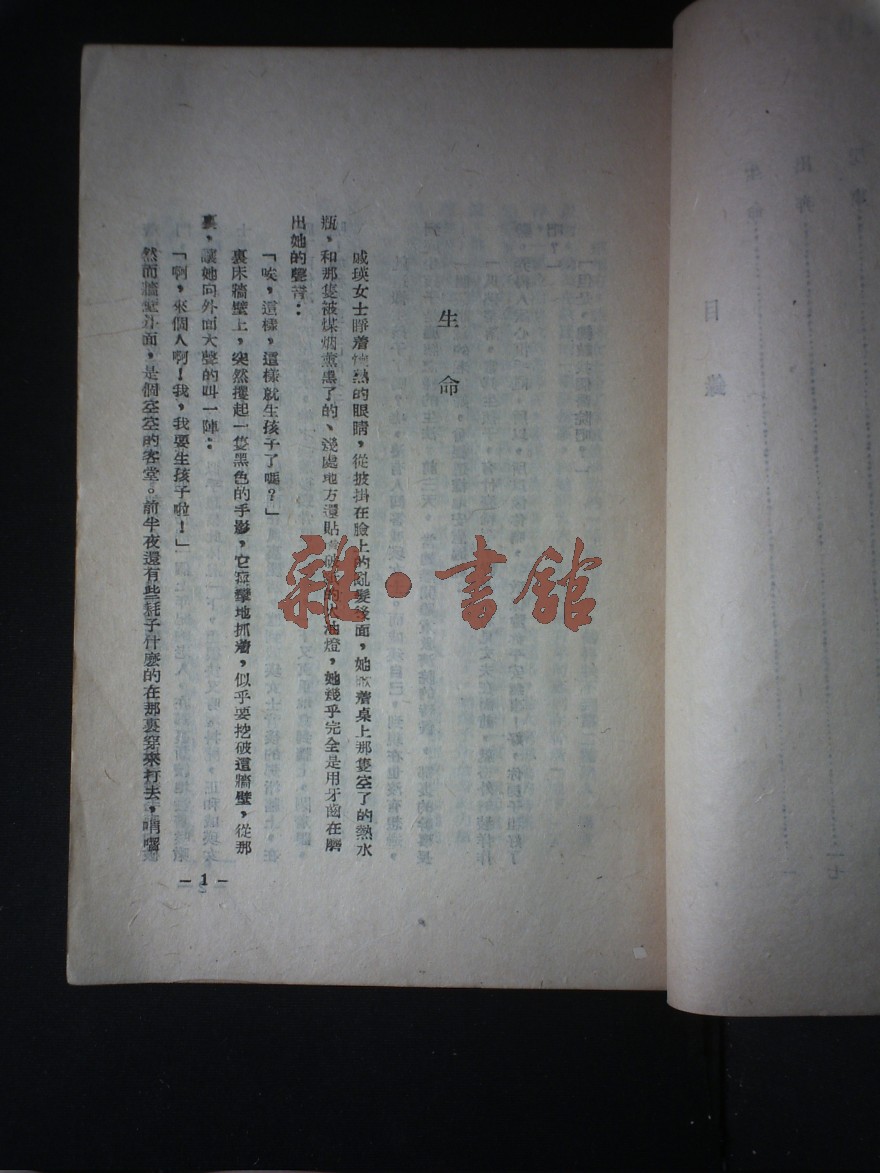 目錄
生命
出奔
一七
生命
戚瑛女士睜着熱的眼睛，從披掛在臉上的亂髮後面，她着桌上那隻空了的熱水
瓶，和那隻被煤烟熏黑了的、淺處地方還貼的油燈，她幾乎完全是用牙齒在磨
出她的聲音：
「唉，這樣，這樣就生孩子了嗎？」
裏床牆壁上，突然攫起一隻黑色的手影，它痙攣地抓着，似乎要挖破這牆壁，從那
裏，讓她向外面大聲的叫一陣：
「啊，來個人啊！我，我要生孩子啦！」
然而牆壁外面，是個空空的客堂。前半夜還有些耗子什麽的在那裏穿來打去，哨嘴
— 1 —
雜·書館